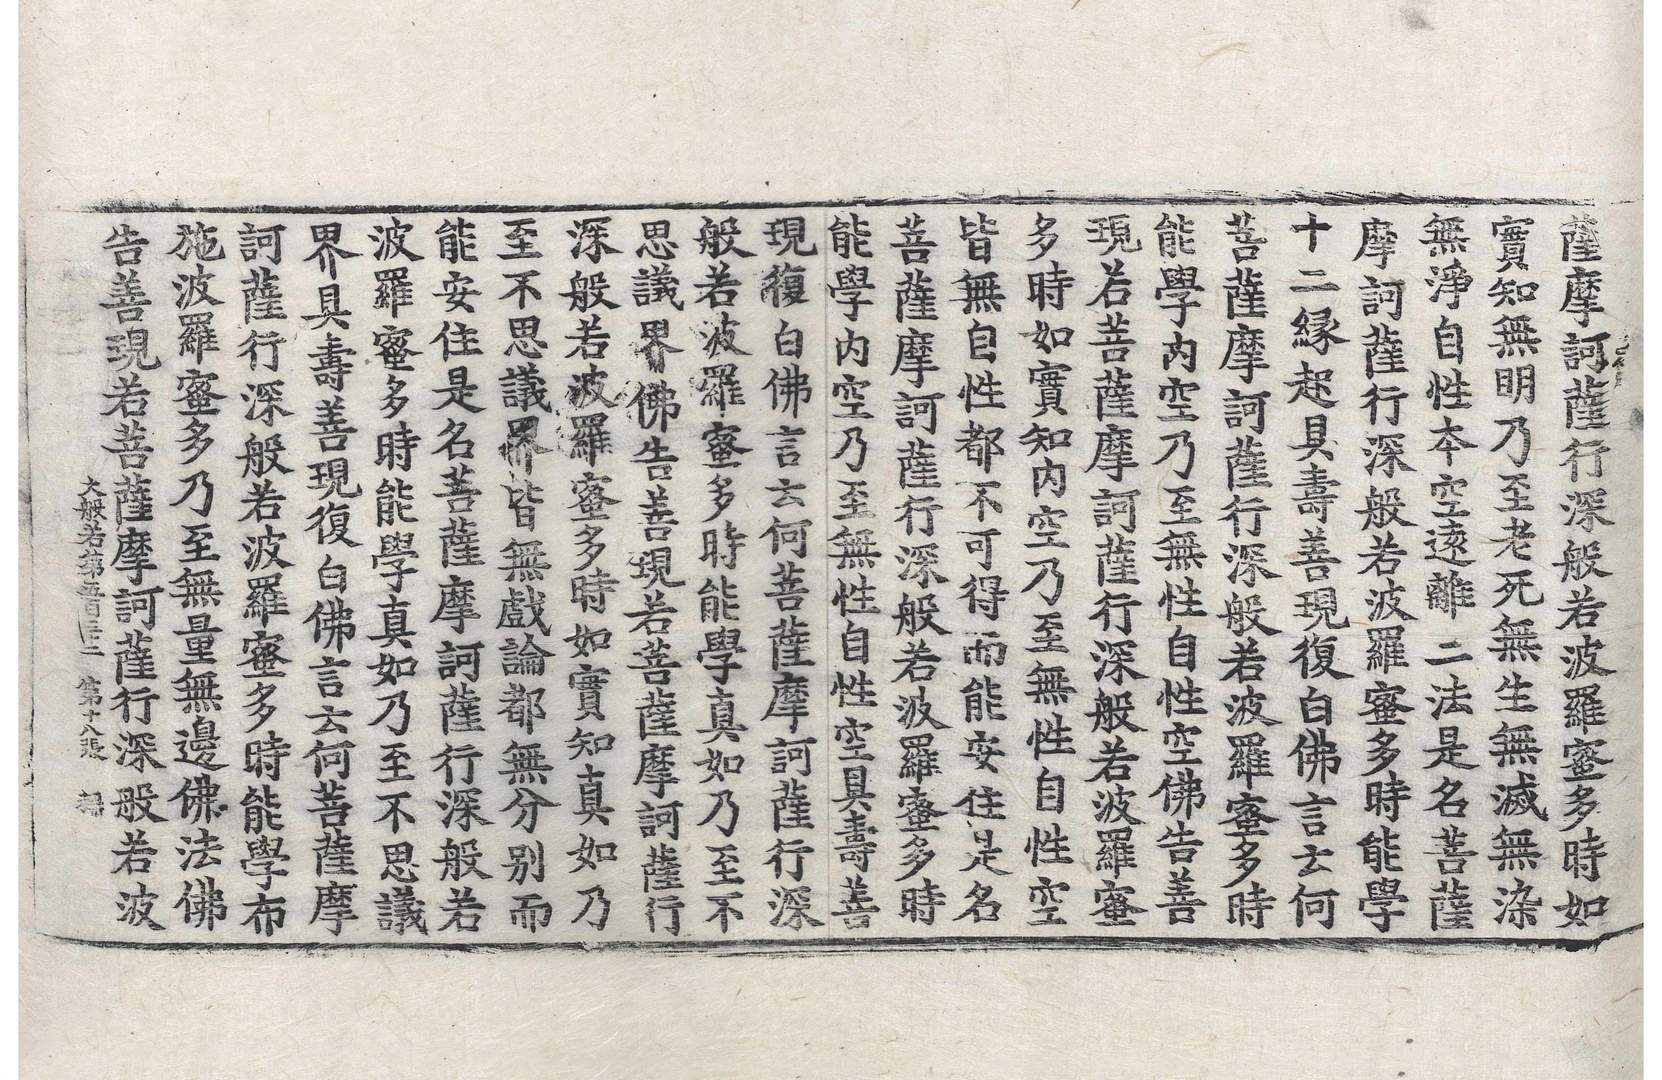 薩摩訶薩行深般若波羅蜜多時如
實知無明乃至老死無生無滅無染
無淨自性本空遠離二法是名菩薩
摩訶薩行深般若波羅蜜多時能學
十二緣起具壽善現復白佛言云何
菩薩摩訶薩行深般若波羅蜜多時
能學內空乃至無性自性空佛告善
現若菩薩摩訶薩行深般若波羅蜜
多時如實知內空乃至無性自性空
皆無自性都不可得而能安住是名
菩薩摩訶薩行深般若波羅蜜多時
能學內空乃至無性自性空具壽善
現復白佛言云何菩薩摩訶薩行深
般若波羅蜜多時能學真如乃至不
思議界佛告善現若菩薩摩訶薩行
深般若波羅蜜多時如實知真如乃
至不思議界皆無戲論都無分別而
能安住是名菩薩摩訶薩行深般若
波羅蜜多時能學真如乃至不思議
界具壽善現復白佛言云何菩薩摩
訶薩行深般若波羅蜜多時能學布
施波羅蜜多乃至無量無邊佛法佛
告善現若菩薩摩訶薩行深般若波
大般若第 第十八張